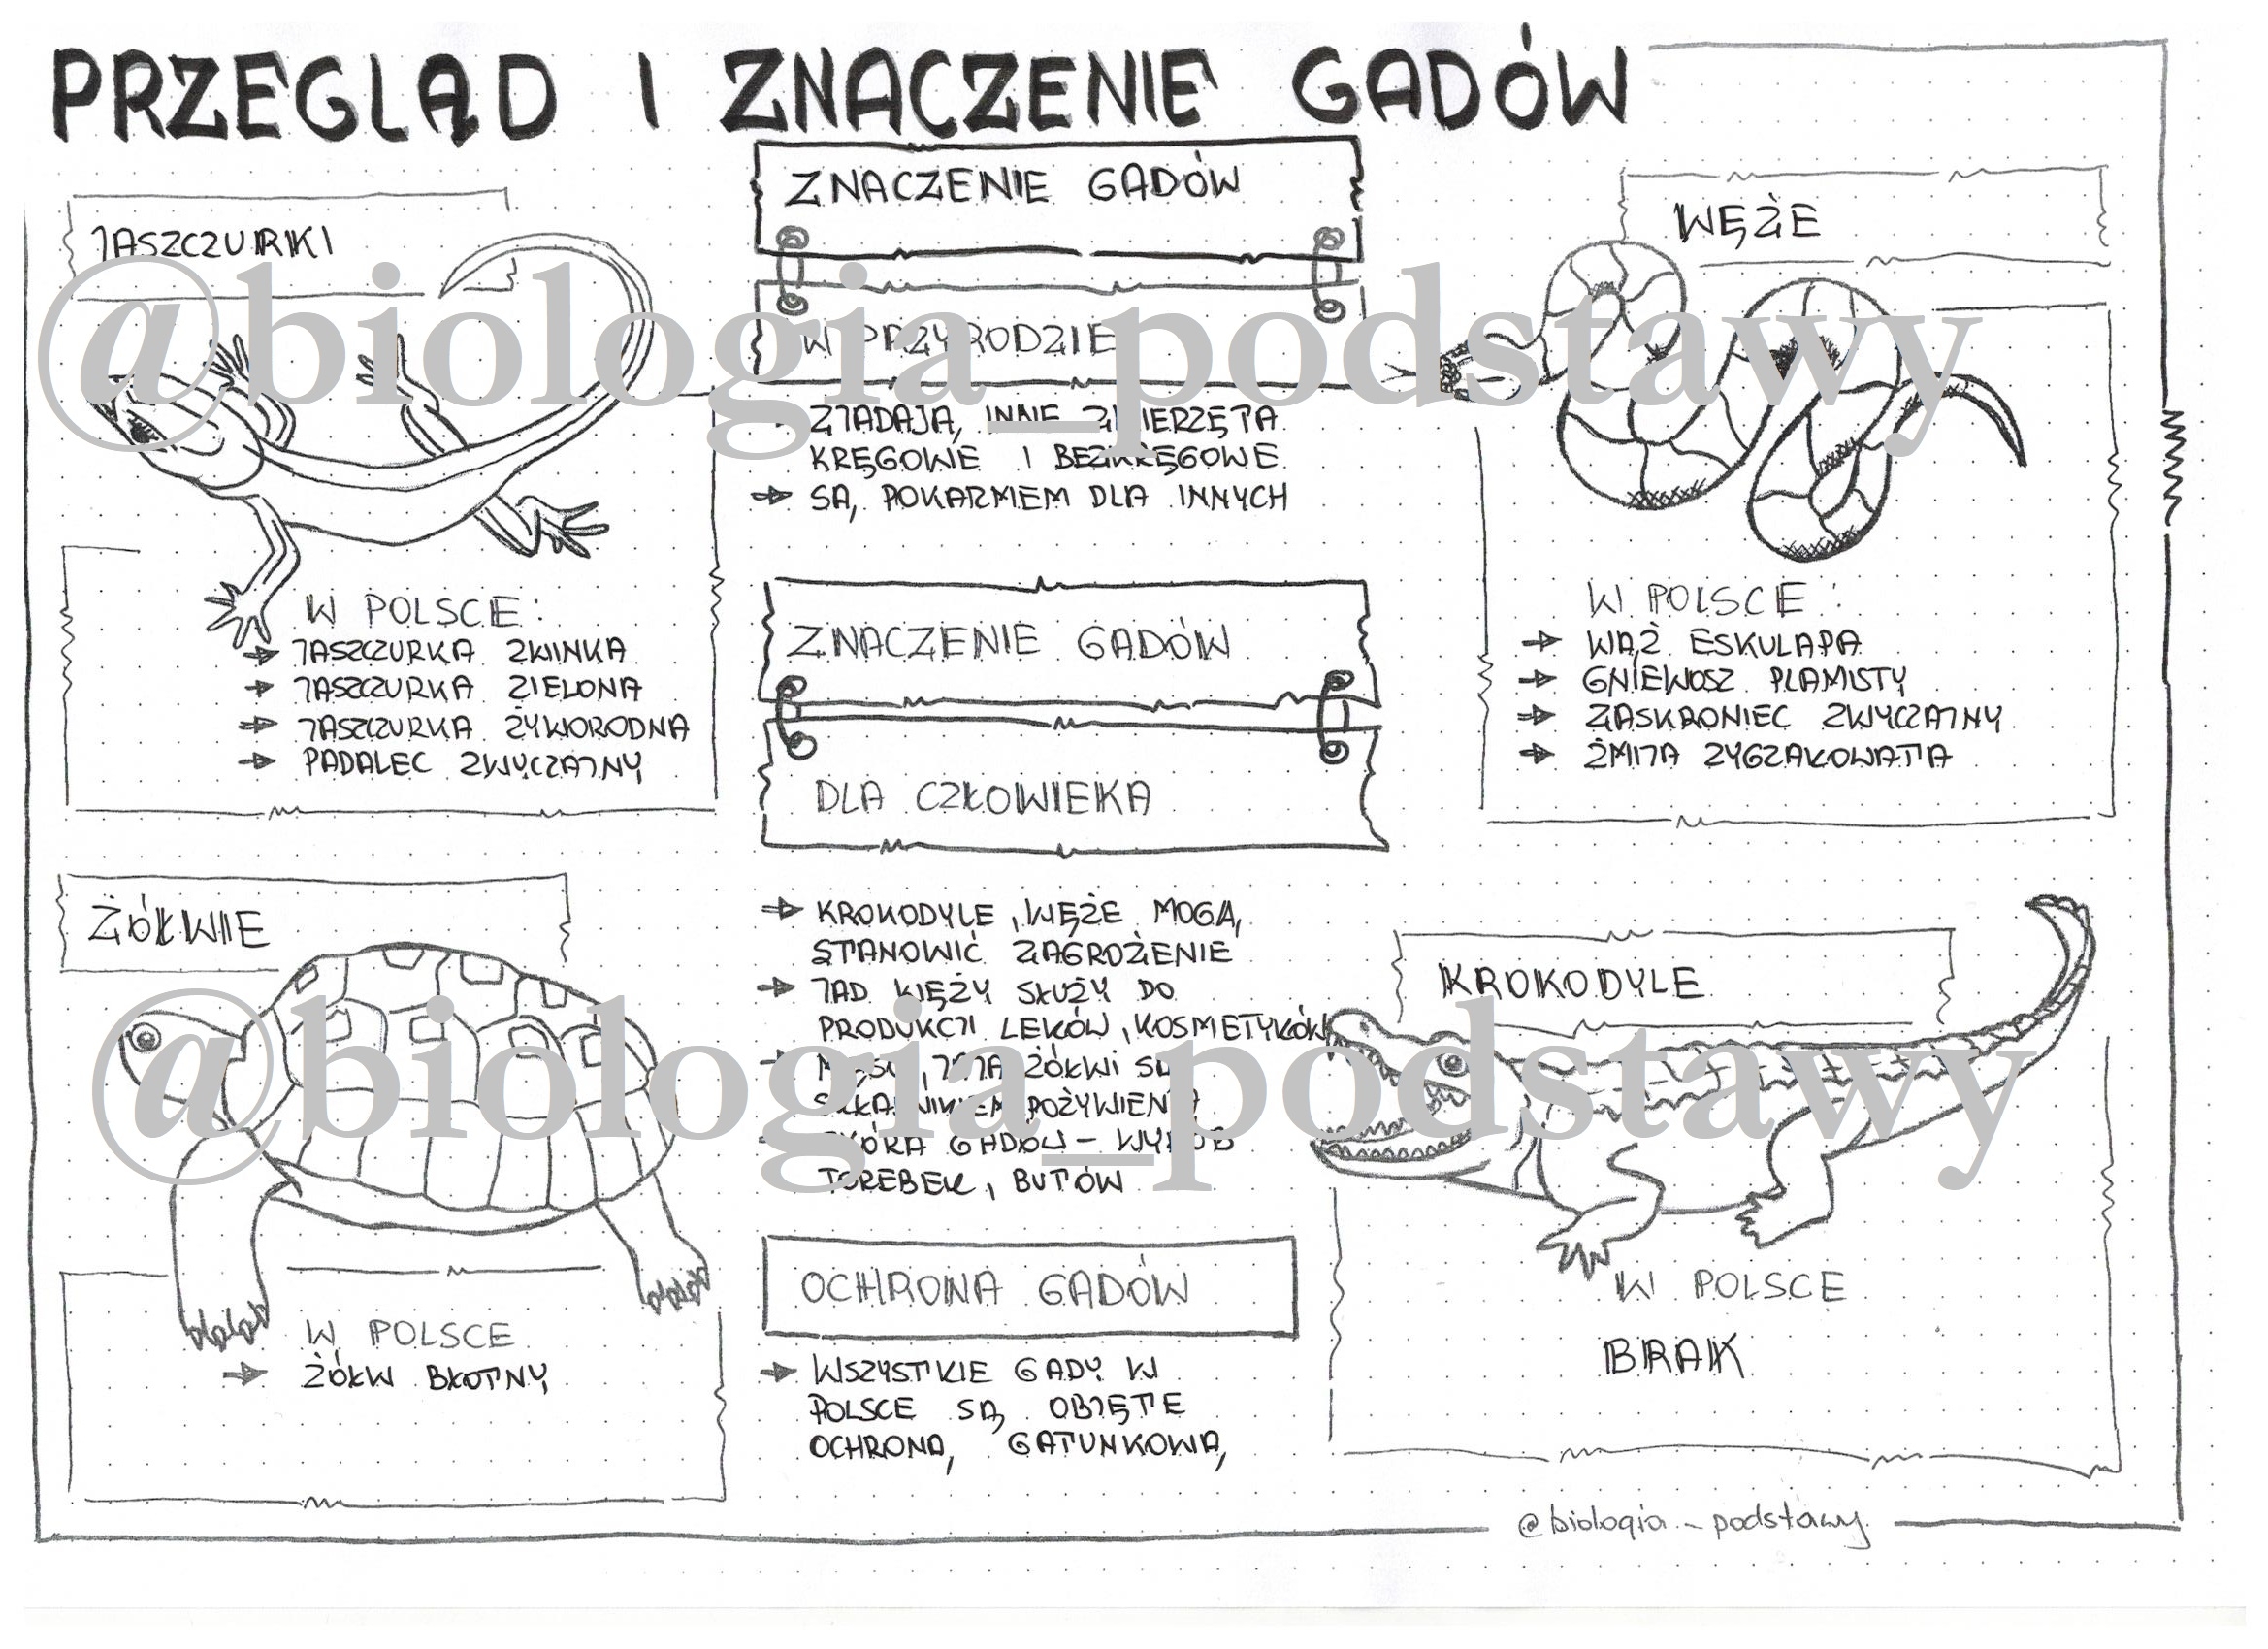 PRZEGLĄD I ZNACZENIE GADÓW
JASZCZURKI
W POLSCE:
→ JASZCZURKA ZWINKA
→ JASZCZURKA ZIELONA
→ JASZCZURKA ŻYWORODNA
→ PADALEC ZWYCZAJNY
ŻÓŁWIE
W POLSCE
→ ŻÓŁW BŁOTNY
ZNACZENIE GADÓW
W PRZYRODZIE
→ ZJADAJĄ INNE ZWIERZĘTA
KRĘGOWE I BEZKRĘGOWE
→ SĄ POKARMEM DLA INNYCH
ZNACZENIE GADÓW
DLA CZŁOWIEKA
→ KROKODYLE, WĘŻE MOGĄ
STANOWIĆ ZAGROŻENIE
→ JAD WĘŻY SŁUŻY DO
PRODUKCJI LEKÓW, KOSMETYKÓW
→ MIĘSO, JAJA ŻÓŁWI SĄ
SKŁADNIKIEM POŻYWIENIA
→ SKÓRA GADÓW – WYRÓB
TOREBEK, BUTÓW
OCHRONA GADÓW
→ WSZYSTKIE GADY W
POLSCE SĄ OBJĘTE
OCHRONĄ GATUNKOWĄ
WĘŻE
W POLSCE:
→ WĄŻ ESKULAPA
→ GNIEWOSZ PLAMISTY
→ ZASKRONIEC ZWYCZAJNY
→ ŻMIJA ZYGZAKOWATA
KROKODYLE
W POLSCE
BRAK
@biologia_podstawy
@biologia_podstawy
@biologia_podstawy